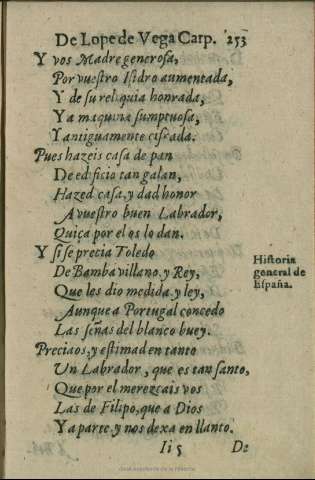 De Lope de Vega Carp. 253
Y vos Madre generosa,
Por vuestro Isidro aumentada,
Y de su reliquia honrada,
Y a maquina sumptuosa,
Y antiguamente cifrada.
Pues hazeis casa de pan
De edificio tan galan,
Hazed casa, y dad honor
A vuestro buen Labrador,
Quiça por el os lo dan.
Y si se precia Toledo
De Bamba villano, y Rey,
Que les dio medida, y ley,
Aunque a Portugal concedo
Las señas del blanco buey.
Historia
general de
España.
Preciaos, y estimad en tanto
Un Labrador, que es tan santo,
Que por el merezcais vos
Las de Filipo, que a Dios
Ya parte, y nos dexa en llanto.
Ii 5 De